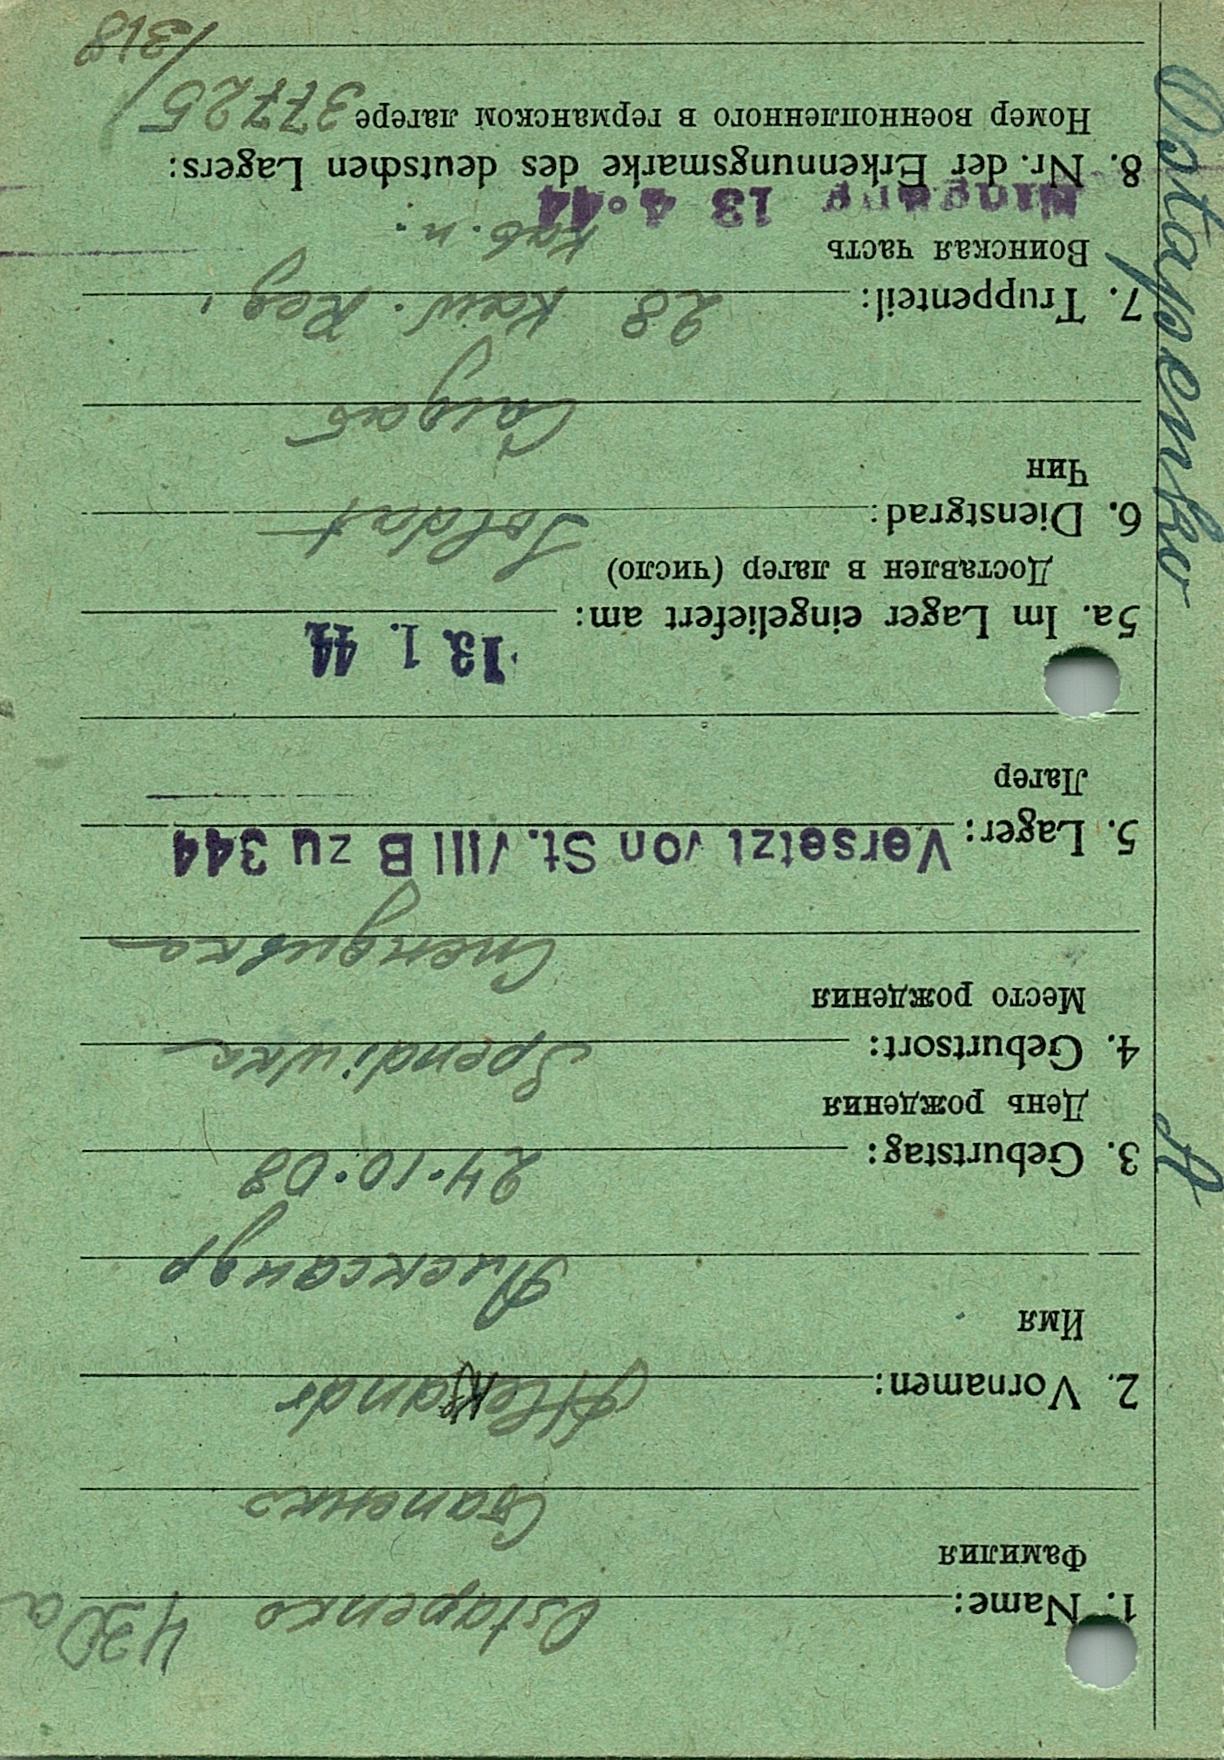 Ostapenko A
430a
1. Name: Ostapenko
Фамилия
Стапенко
2. Vornamen: Aleksandr
Имя
Александр
3. Geburtstag: 24.10.08
День рождения
4. Geburtsort: Spendiwka
Место рождения
Спендивка
5. Lager: Versetzt von St. VIII B zu 344
Лагер
13. 1. 44
5a. Im Lager eingeliefert am:
Доставлен в лагер (число)
6. Dienstgrad: Soldat
Чин
Салдат
7. Truppenteil: 28 Kaw. Reg.
Воинская часть
Каб.п.
Eingang 13 4·44
8. Nr. der Erkennungsmarke des deutschen Lagers:
Номер военнопленного в германском лагере 37725/
/318